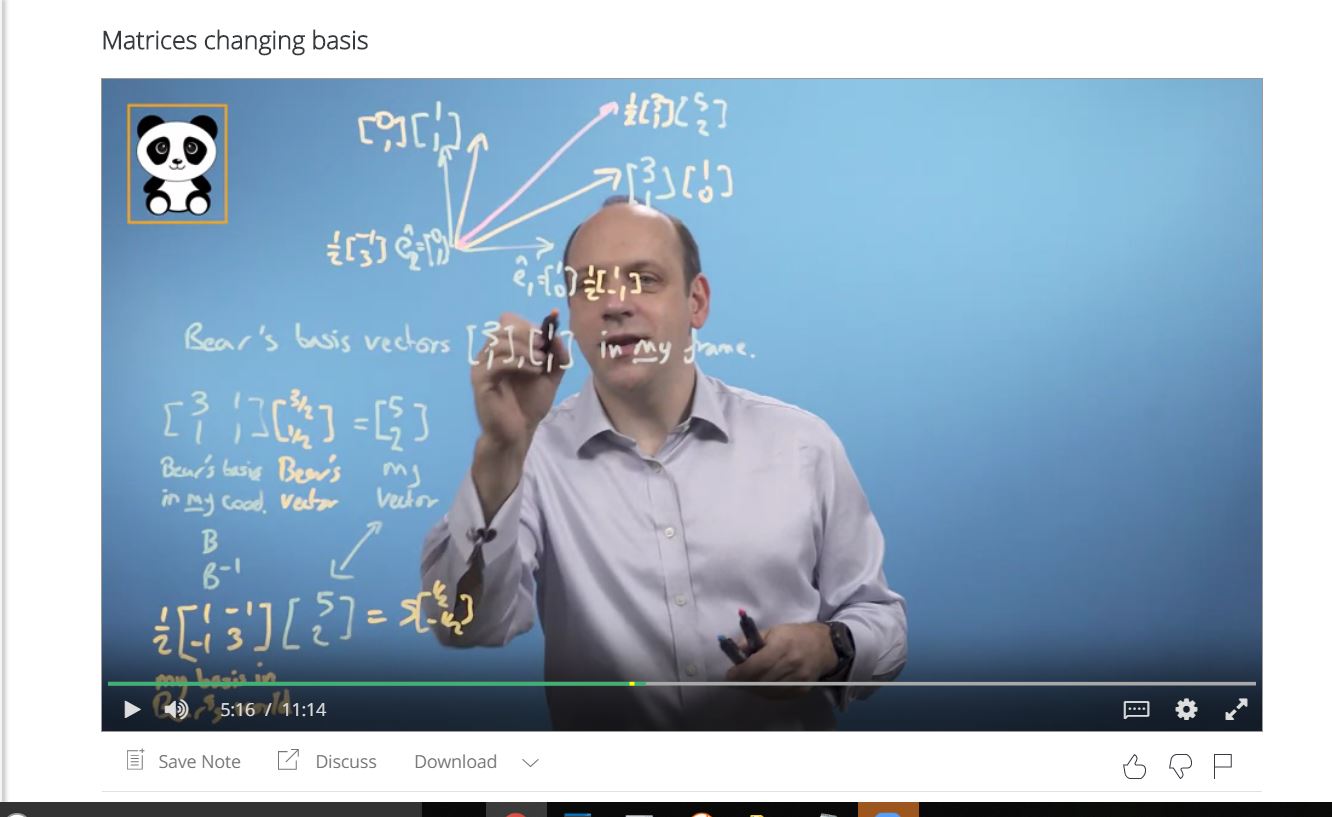 Matrices changing basis
[0 1] [1 1]
½[3 1] [5 2]
[3 1] [1 0]
½[-1 3] ê₂=[0 1]
ê₁=[1 0] ½[1 -1]
Bear's basis vectors [3 1], [1 1] in my frame.
[3 1 1 1] [3/2 1/2] = [5 2]
Bear's basis Bear's my
in my coord. vector vector
B
B⁻¹
½[1 -1 -1 3] [5 2] =
my basis in
Bear's world
5:16 / 11:14
Save Note Discuss Download